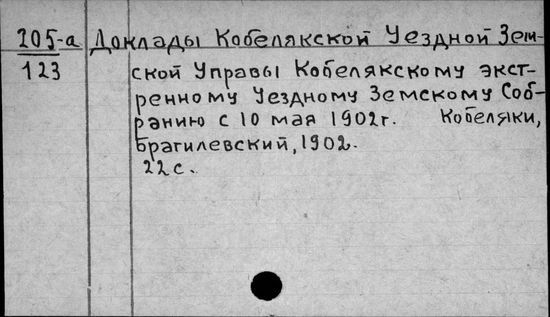 205-а Доклады Кобелякской Уездной Зем-
123 ской Управы Кобелякскому экст-
ренному Уездному Земскому Соб-
ранию с 10 мая 1902г. Кобеляки,
Брагилевский, 1902.
22с.